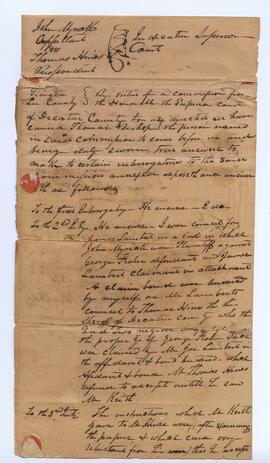 John Mynock
Appellant
vs
Thomas Hines
Respondent
In Decatur Superior
Court
Georgia
By virtue of a commission from
County the Honorable the Superior Court
of Decatur County to us directed we have
caused Thomas the person named
in said commission to come before us and
being duly sworn true answers to
make to certain interrogatories to the same
commission annexed deposeth and answer
eth as follows
To the first Interrogatory He answers I do
To the 2nd Inty He answers I was council for
James Lambert in a case in which
John Mynock was Plaintiff against
George Fisher defendant and James
Lambert claimant in attachment
A claim bond was tendered
by myself as Mr Lamberts
council to Thomas Hines the then
Sheriff of Decatur County who the
had two negroes
the property of George Fisher that
was claimed by Mr Lambert in
the affidavit and bond. Which
affidavit & bond Mr Thomas Hines
refused to accept untill he saw
Mr Keith
To the 3rd Inty The instructions which Mr Keith
gave to Mr Hines were, after examining
the papers & which came very
reluctant from him were that he accept